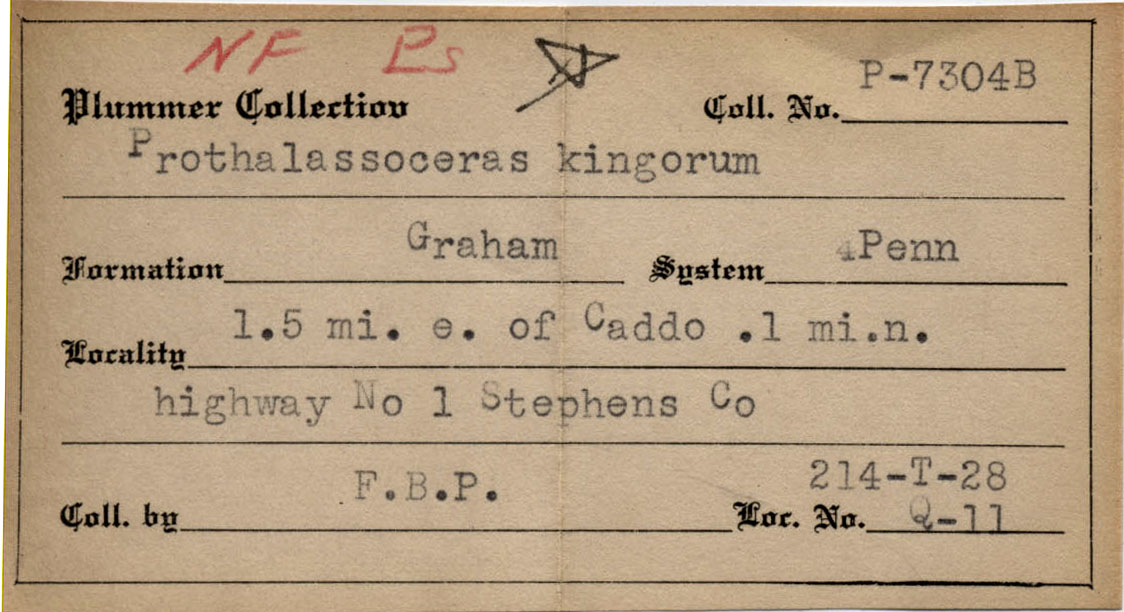 NF Ps
P-7304B
Plummer Collection Coll. No.
Prothalassoceras kingorum
Graham Penn
Formation System
1.5 mi. e. of Caddo .1 mi.n.
Locality
highway No 1 Stephens Co
F.B.P. 214-T-28
Coll. by Loc. No. Q-11